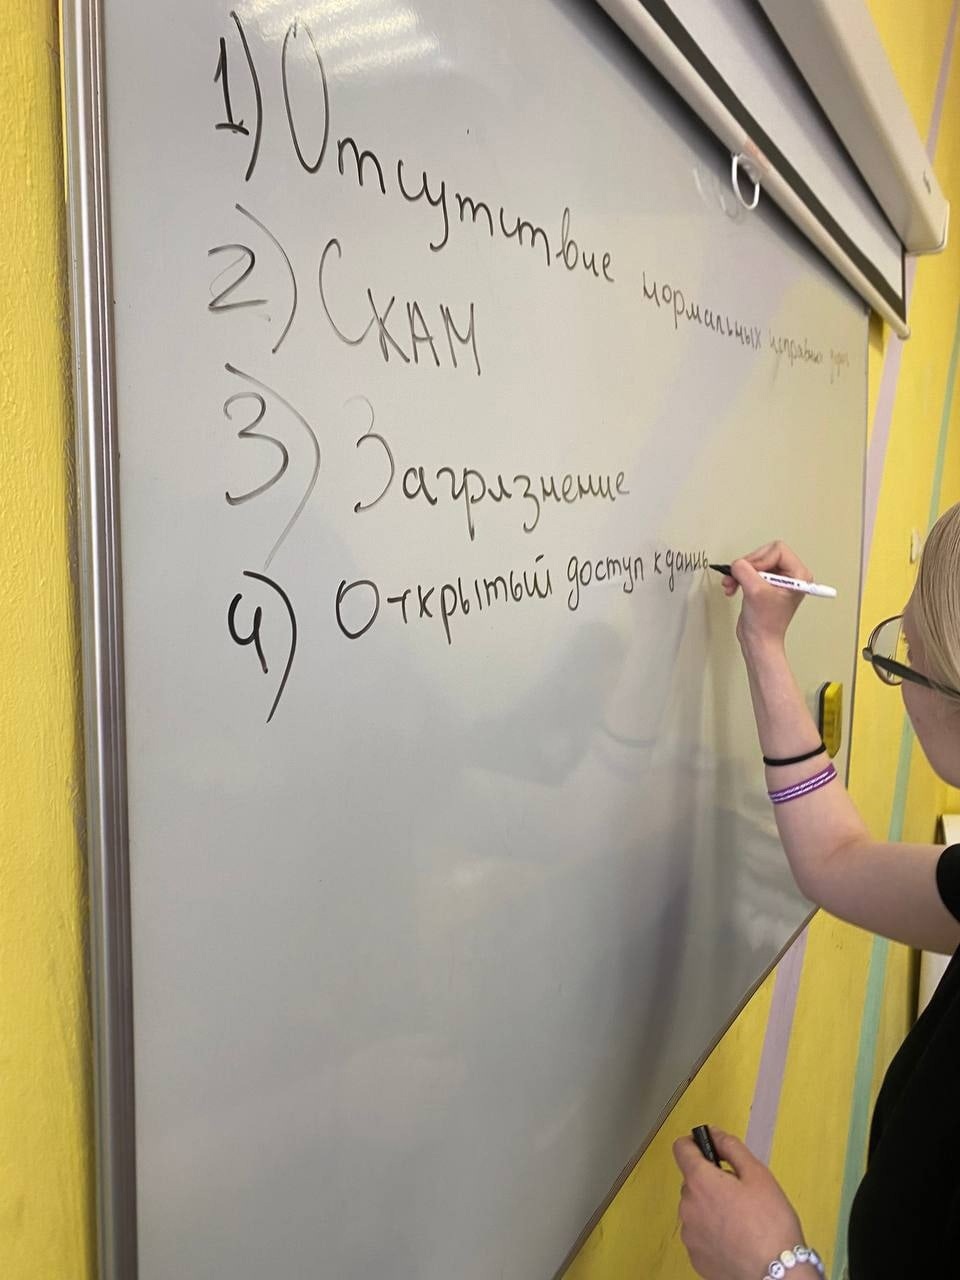 1) Отсутствие нормальных
2) СКАМ
3) Загрязнение
4) Открытый доступ к данны